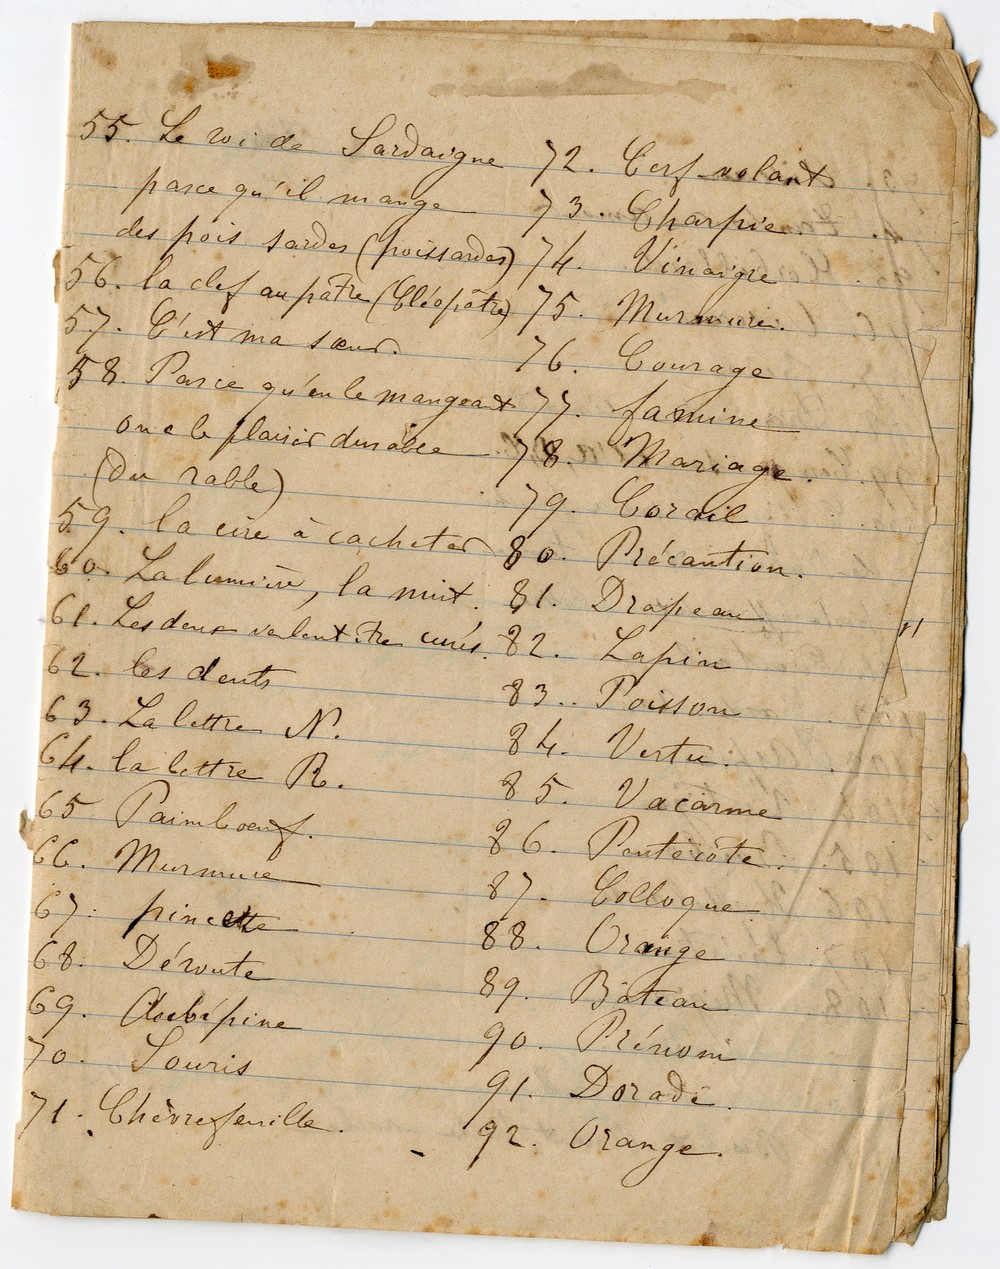 55. Le roi de Sardaigne
parce qu'il mange
des pois sardes (poissardes)
56. la clef au pâtre (Cléopâtre)
57. C'est ma sœur.
58. Parce qu'en le mangeant
on a le plaisir durable
(du rable)
59. la cire à cacheter
60. La lumière, la nuit.
61. Les deux veulent être curés.
62. les dents
63. La lettre N.
64. la lettre R.
65 Paimboeuf.
66. Murmure
67. pincette
68. Déroute
69. Aubépine
70. Souris
71. Chèvrefeuille.
72. Cerf-volant
73. Charpie.
74. Vinaigre
75. Murmure.
76. Courage
77. famine
78. Mariage.
79. Corail
80. Précaution.
81. Drapeau
82. Lapin
83. Poisson
84. Vertu.
85. Vacarme
86. Pentecôte.
87. Colloque
88. Orange
89. Bâteau
90. Prénom
91. Dorade.
92. Orange.